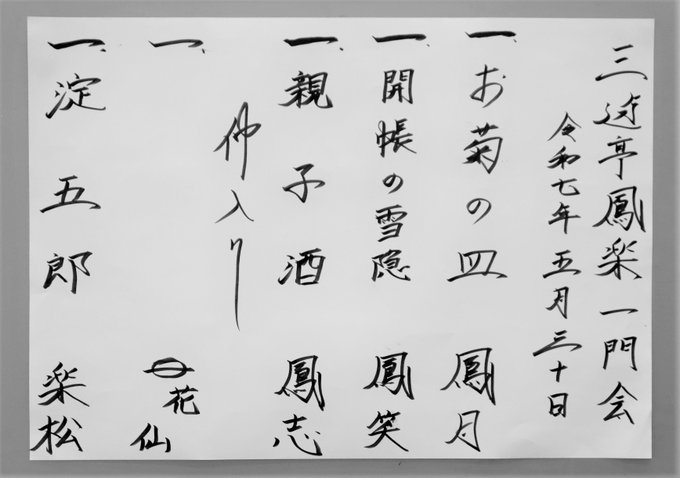 三遊亭鳳楽一門会
令和七年五月三十日
一、お菊の皿 鳳月
一、開帳の雪隠 鳳笑
一、親子酒 鳳志
仲入り
一、 花仙
一、淀五郎 楽松